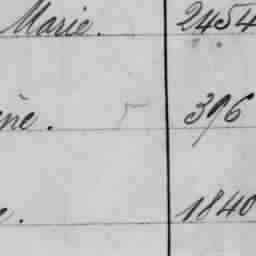 Marie. 2454
ène. 396
e. 1840